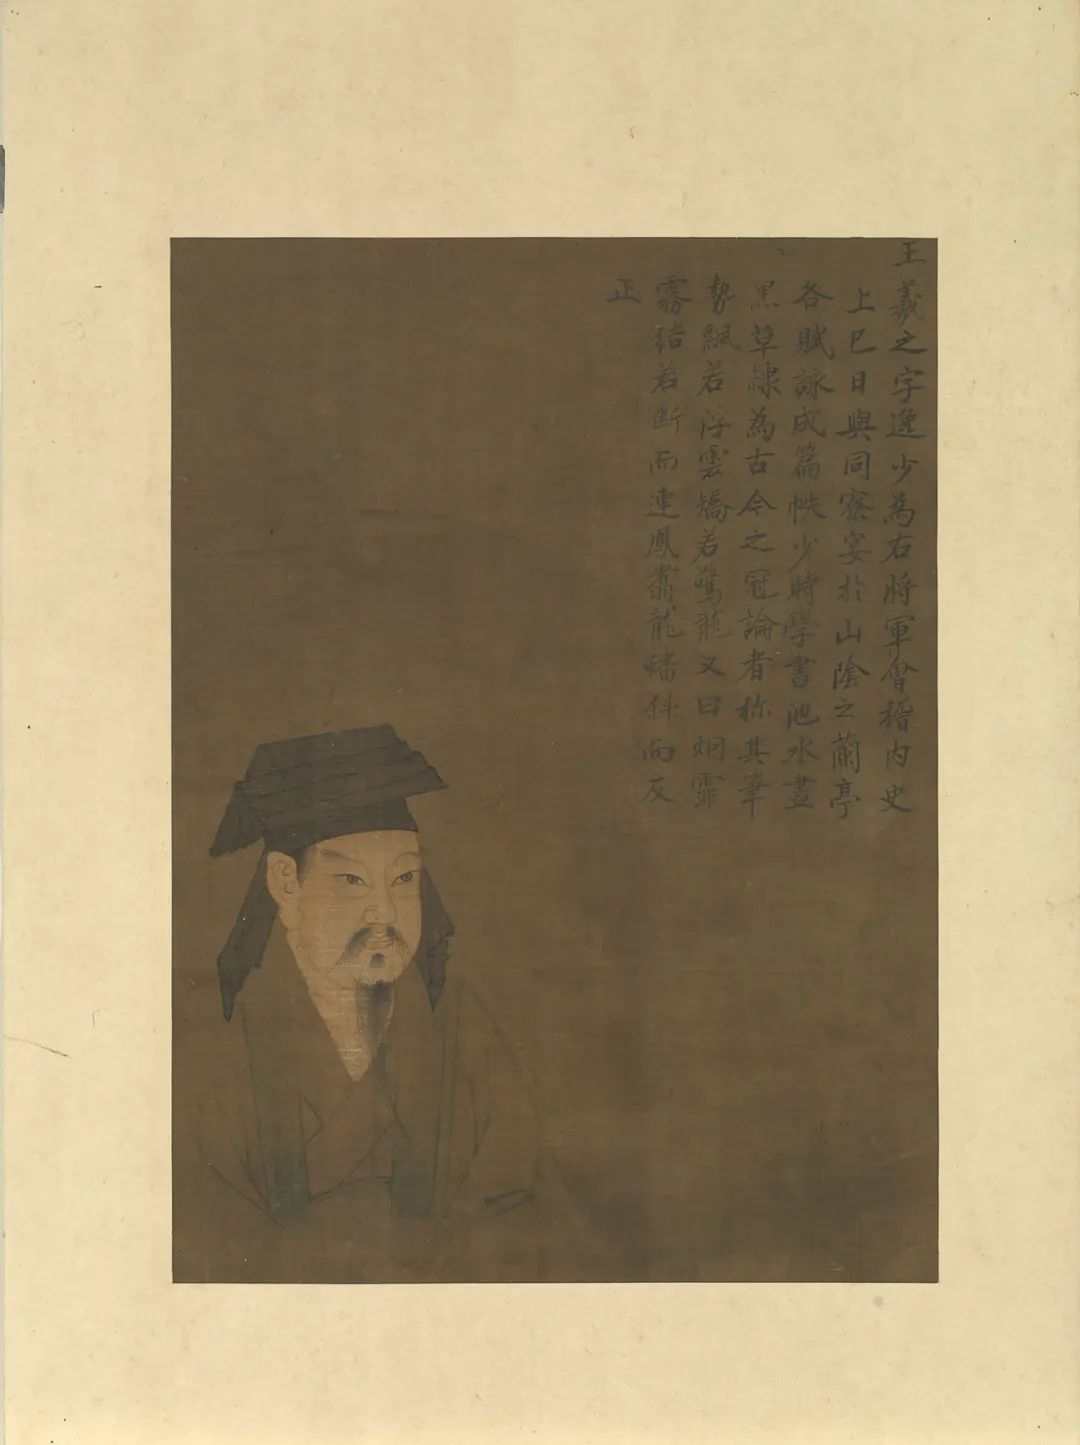 王羲之字逸少為右將軍會稽内史
上巳日與同寮宴於山陰之蘭亭
各賦詠成篇帙少時學書池水盡
黑草隸為古今之冠論者称其筆
勢飄若浮雲矯若驚龍又曰烟霏
霧結若断而連鳳翥龍蟠斜而反
正